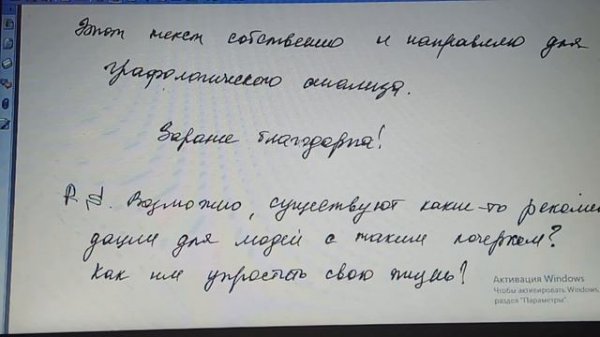 Этот текст собственно и направляю для
графологического анализа.
Заранее благодарна!
P.S. Возможно, существуют какие-то рекомен
дации для людей с таким почерком?
Как им упростить свою жизнь?
Активация Windows
Чтобы активировать Windows,
раздел "Параметры".